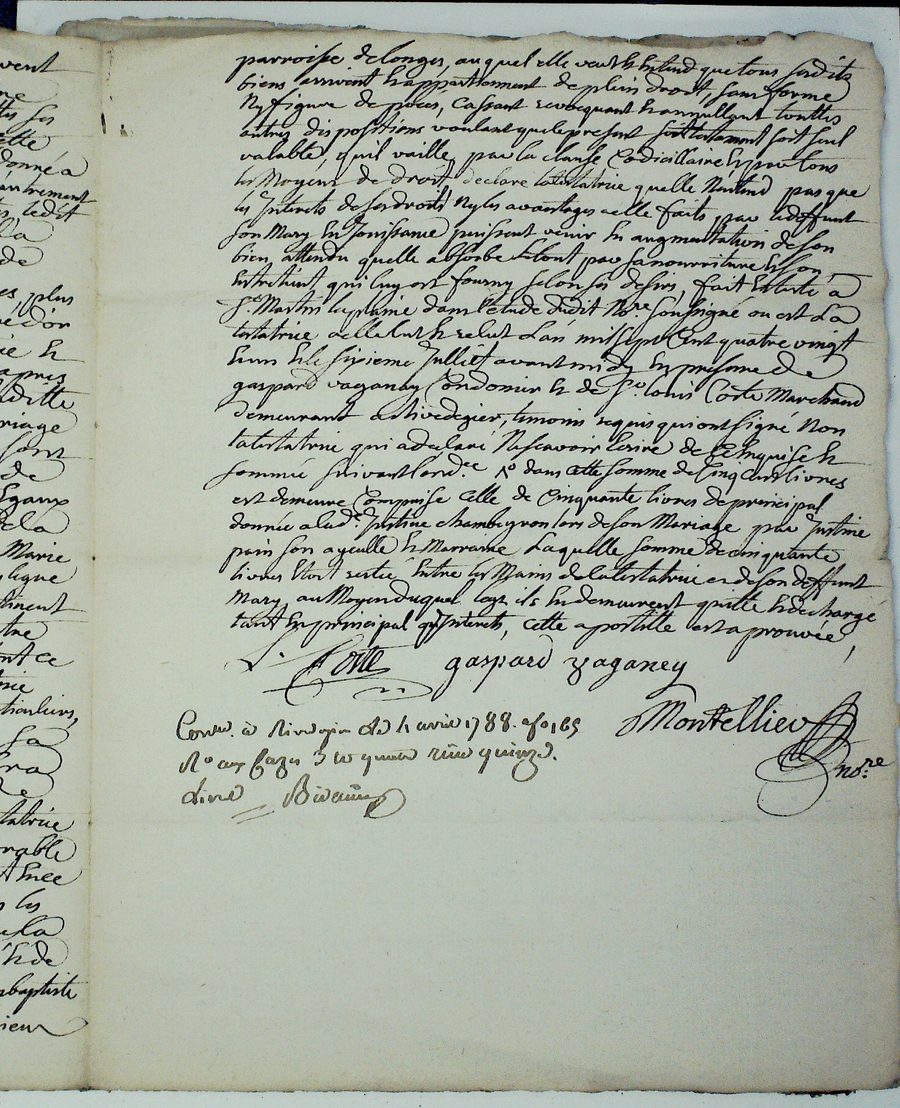 vent
tes ses
elle
donné a
autrement
ts, ledit
la
de
es, plus
né d'or
rie &
apres
laditte
riage
sont
de
Egaux
dela
Marie
ligne
tinent
stre
ont ce
trie
ticuliers,
sa
ra
de
tatrice
rable
t Enée
s les
u la
& de
nbaptiste
sieur
parroisse de longes, auquel elle veut & Entend que tous sesdits
biens arrivent & appartiennent de plein droit, sans forme
Ny figure de procès, Cassant revocquant & annullant touttes
autres dispositions voulant que le present testament soit seul
valable, quil vaille par la clause Codicillaire & par tous
les Moyens de droit, declare latestatrice quelle Nentend pas que
les Interets de ses droits Ny les avantages a elle faits, par ledeffunt
son Mary En Jouissance puissent venir En augmentation de son
bien, attendu quelle absorbe le tout par sa nourriture & son
Entretient qui luy est fourny selon ses desirs, fait & testé à
St. Martin laplaine dans létude dudit Nore. soussigné ou est La
testatrice a elle lu & relut Lan mil sept Cent quatre vingt
trois & le sixieme Juillet avant midy En presence de
gaspard vaganay Cordonier & de sr. louis Coste Marchand
demeurant a Rivedegier, temoins requis qui ont signé Non
latestatrice qui a declaré Nescavoir Ecrire de ce Enquise &
sommée suivant lordce. dans cette somme de Cinq cent livres
est demeuré Comprise celle de Cinquante livres de principal
donnée a lade. Justine chambeyron lors de son Mariage par Justine
pain son ayeulle & Marraine Laquelle somme de cinquante
livres Etoit restée Entre les Mains de latestatrice & de son deffunt
Mary au Moyen duquel legs ils En demeurent quitte & dechargé
tant En principal qu'Interets, cette apostille est aprouvée,
L. Coste gaspard vaganey
Montellier
nore.
Conlé. à Rivedegier Le 4 avril 1788. fo 165
Ro aux Cazes
quinze
Livres